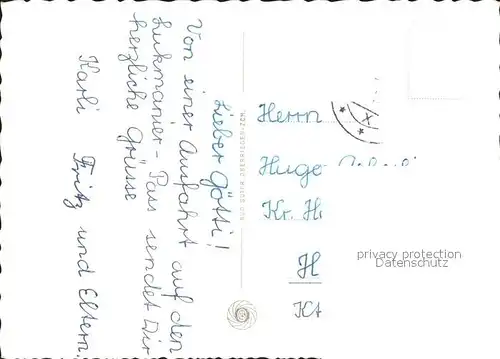 Lieber Götti!
Von einer Ausfahrt auf den
Lukmanier-Pass sendet Dir
herzliche Grüsse
Karli Fritz und Eltern
Herrn
Hugo
Kr. H
H
Kt
privacy protection
Datenschutz